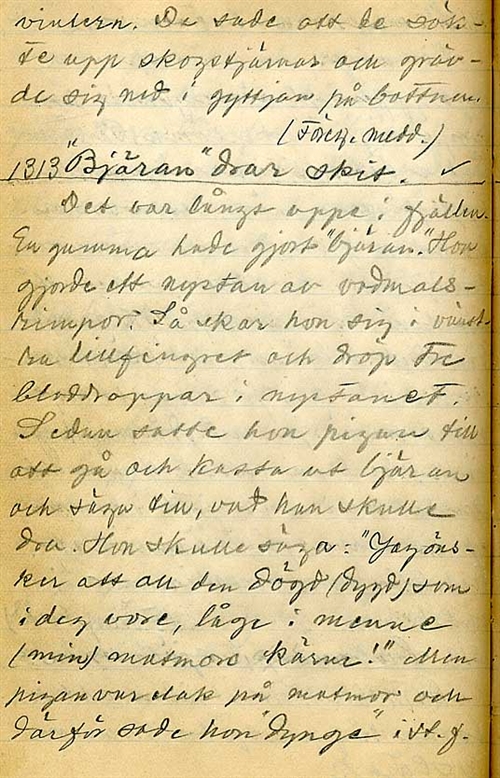 vintern. De sade att de sök-
te upp skogstjärnar och gräv-
de sig ned i gyttjan på bottnen.
(Föreg. medd.)
1313 "Bjäran" drar skit. ✓
Det var långt uppe i fjällen.
En gumma hade gjort "bjäran." Hon
gjorde ett nystan av vadmals-
rimpor. Så skar hon sig i vänst-
ra lillfingret och dröp tre
bloddroppar i nystanet.
Sedan satte hon pigan till
att gå och kasta ut bjäran
och säga till, vad han skulle
dra. Hon skulle säga: "Jag öns-
ker att all den dögd (dygd) som
i deg vore, låge i menne
(min) matmors kärne!" Men
pigan var elak på matmor och
därför sade hon "dynge" i st. f.